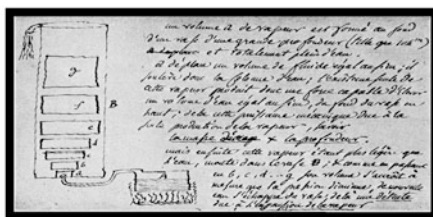 un volume a de vapeur est formé au fond
d'un vase d'une grande profondeur (telle que
et totalement plein d'eau.
a déplace un volume de fluide égal au sien; il
soulève donc la colonne d'eau; l'existence seule de
cette vapeur produit donc une force capable d'élever
un volume d'eau égal au sien, du fond du vase en
haut; de là cette puissance mécanique due à la
production de la vapeur
la profondeur.
mais ensuite cette vapeur étant plus légère que
l'eau, monte dans le vase B, & comme en passant
en b, c, d...g son volume s'accroît à
mesure que la pression diminue,
de vase, de là une détente
due à l'expansion de la vapeur
g
f
B
e
d
c
b